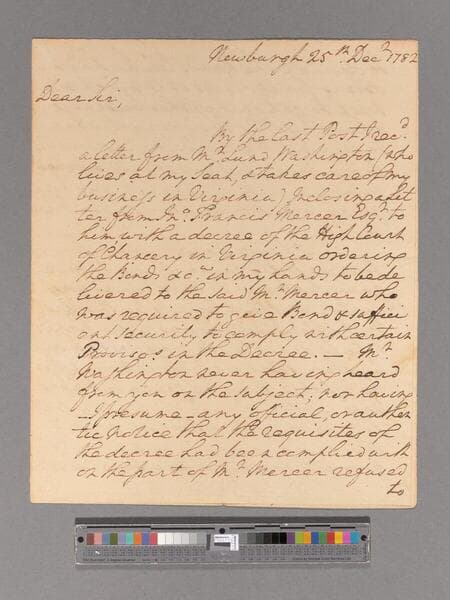 Newburgh 25th Decr 1782
Dear Sir,
By the last Post I recd
a letter from Mr Lund Washington (who
lives at my Seat, & takes care of my
business in Virginia) Inclosing a let
ter from Jno Francis Mercer Esqr to
him with a decree of the High Court
of Chancery in Virginia ordering
the Bonds &ca in my hands to be de
livered to the said Mr Mercer who
was required to give Bond & suffici
ent security to comply with certain
Provisos in the Decree. — Mr
Washington never having heard
from you on the subject; nor having
—I presume—any official, or authen
tic notice that the requisites of
the decree had been complied with
on the part of Mr Mercer refused
to